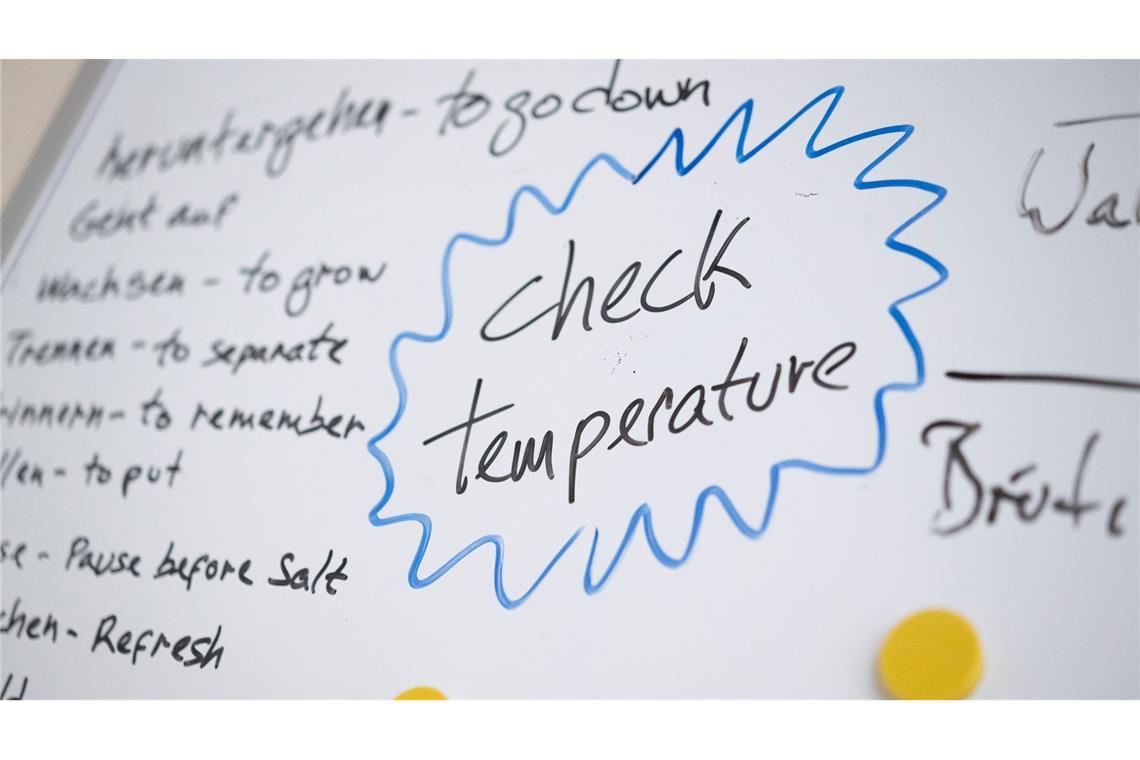 heruntergehen - to go down
Geht auf
Wachsen - to grow
Trennen - to separate
innern - to remember
llen - to put
se - Pause before Salt
chen - Refresh
ld
check
temperature
Wa
Brote